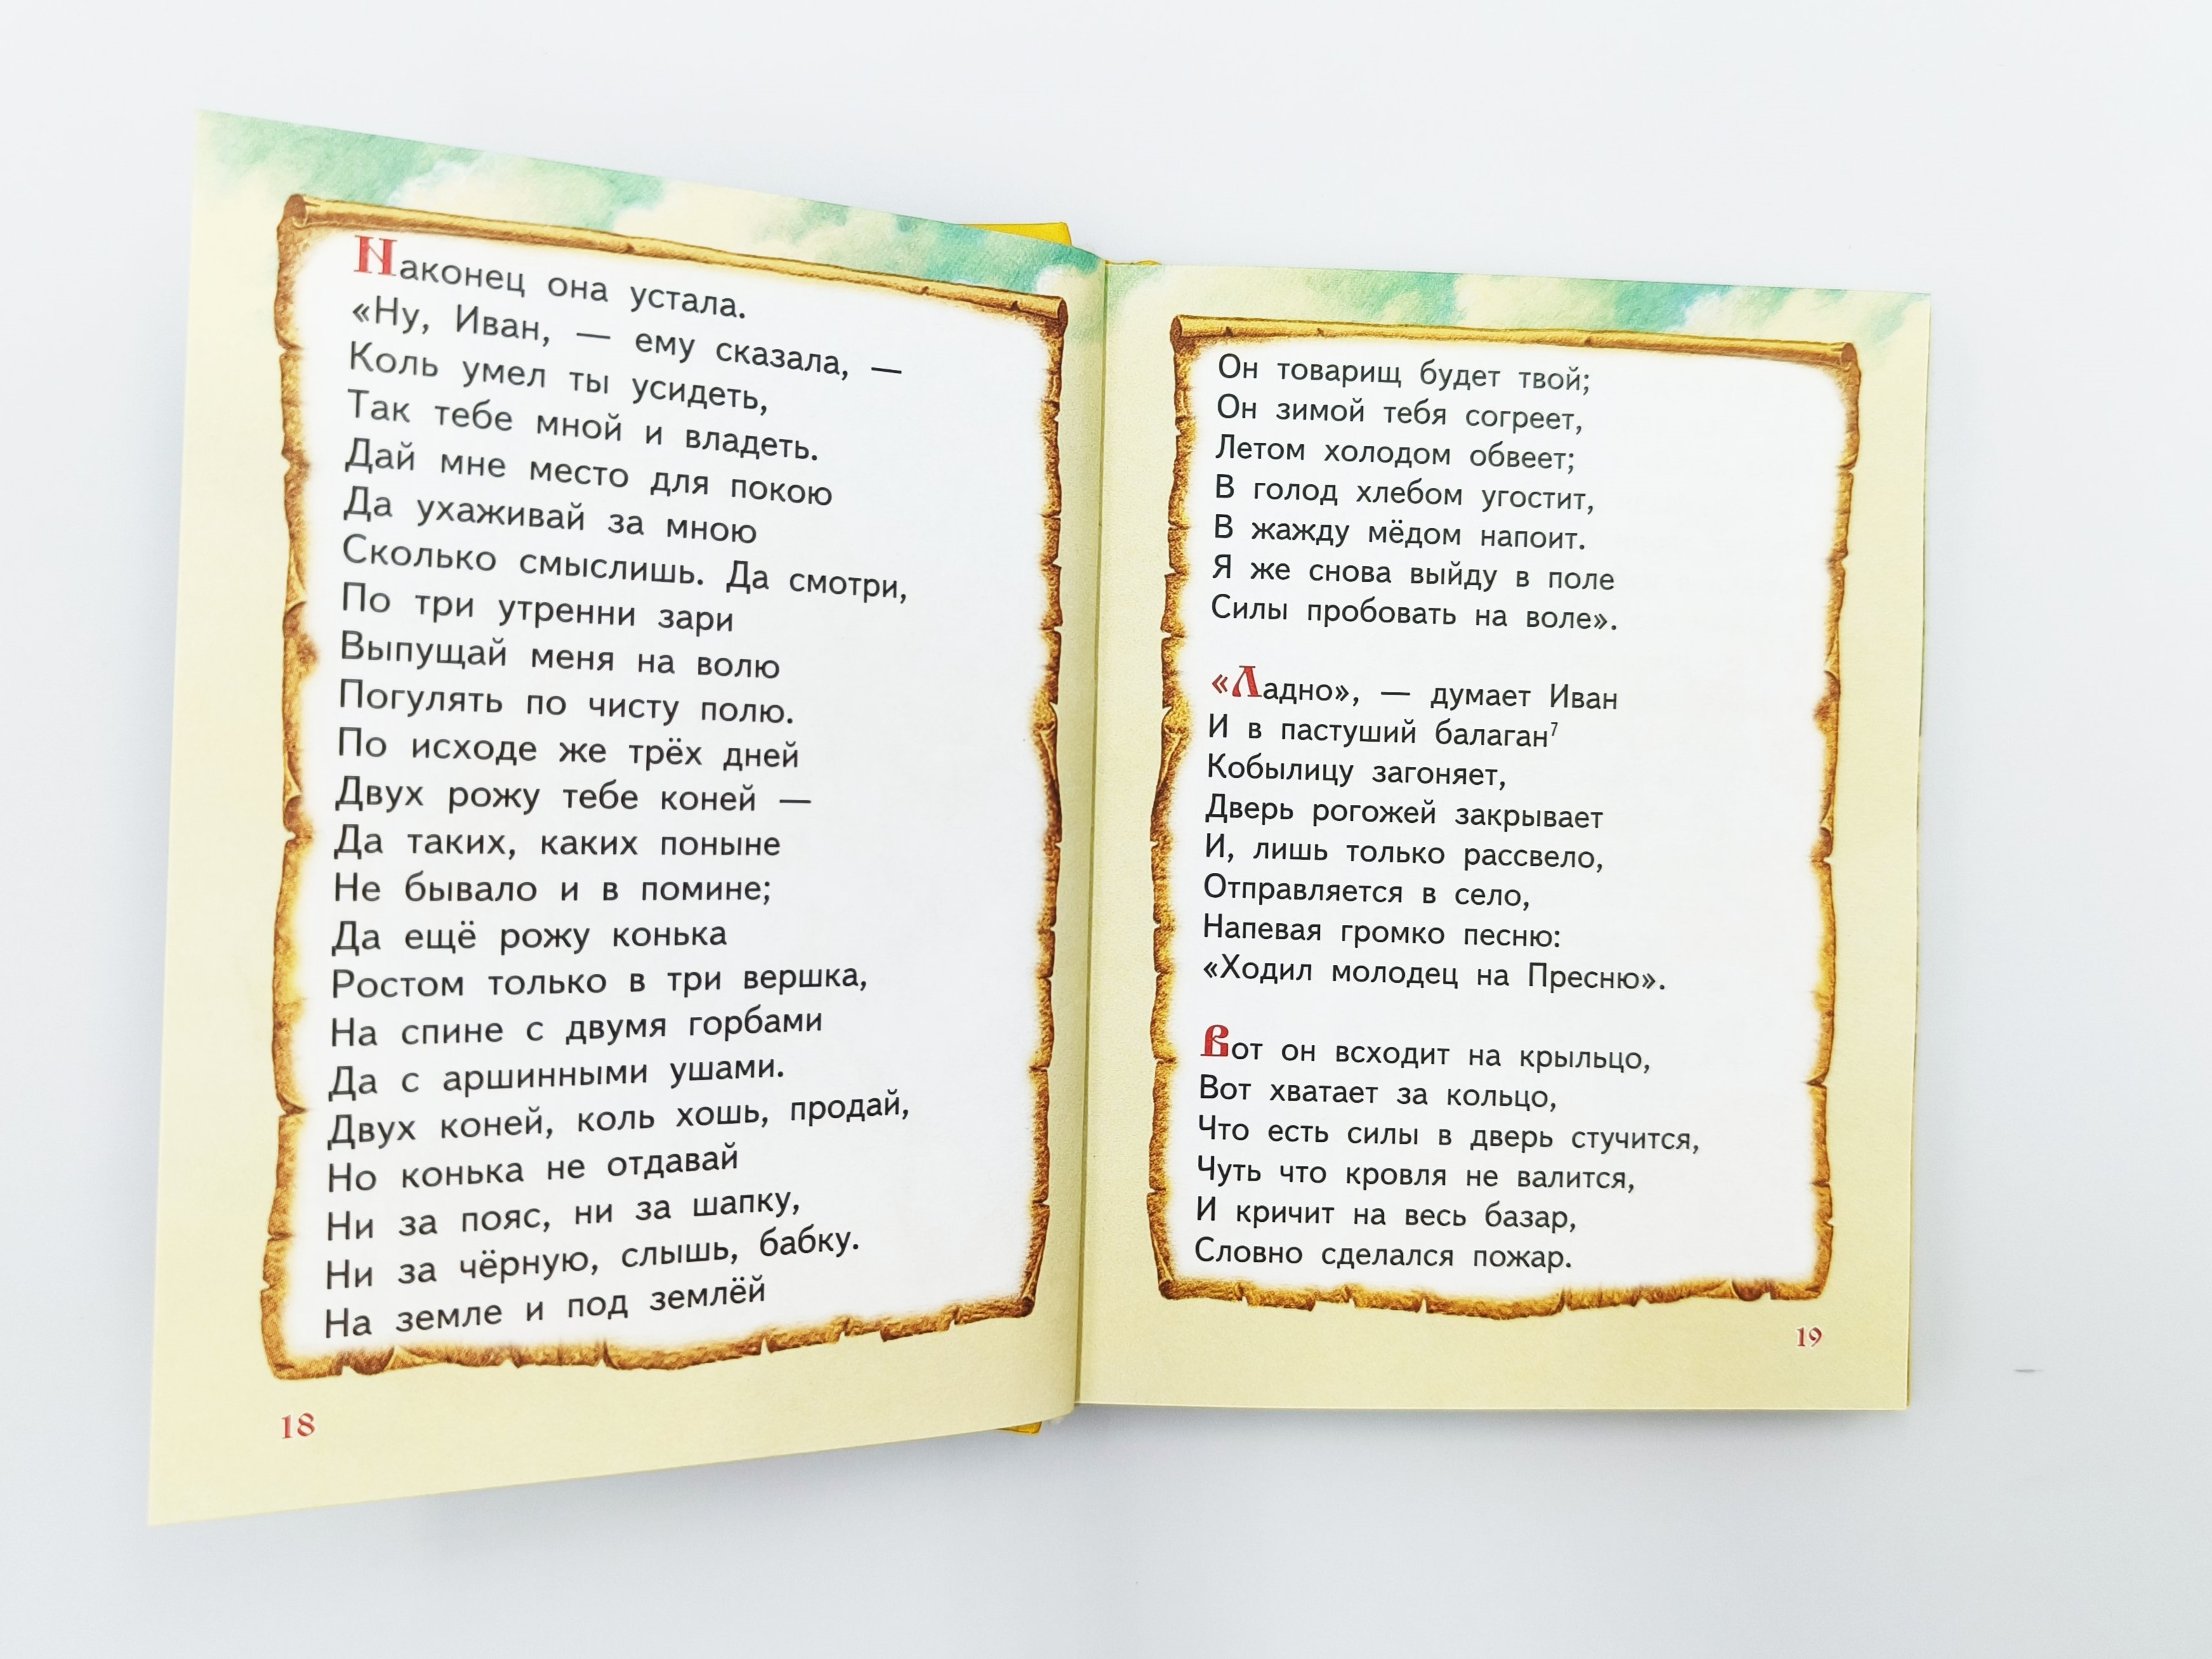 Наконец она устала.
«Ну, Иван, — ему сказала, —
Коль умел ты усидеть,
Так тебе мной и владеть.
Дай мне место для покою
Да ухаживай за мною
Сколько смыслишь. Да смотри,
По три утренни зари
Выпущай меня на волю
Погулять по чисту полю.
По исходе же трёх дней
Двух рожу тебе коней —
Да таких, каких поныне
Не бывало и в помине;
Да ещё рожу конька
Ростом только в три вершка,
На спине с двумя горбами
Да с аршинными ушами.
Двух коней, коль хошь, продай,
Но конька не отдавай
Ни за пояс, ни за шапку,
Ни за чёрную, слышь, бабку.
На земле и под землёй
18
Он товарищ будет твой;
Он зимой тебя согреет,
Летом холодом обвеет;
В голод хлебом угостит,
В жажду мёдом напоит.
Я же снова выйду в поле
Силы пробовать на воле».
«Ладно», — думает Иван
И в пастуший балаган⁷
Кобылицу загоняет,
Дверь рогожей закрывает
И, лишь только рассвело,
Отправляется в село,
Напевая громко песню:
«Ходил молодец на Пресню».
Вот он всходит на крыльцо,
Вот хватает за кольцо,
Что есть силы в дверь стучится,
Чуть что кровля не валится,
И кричит на весь базар,
Словно сделался пожар.
19